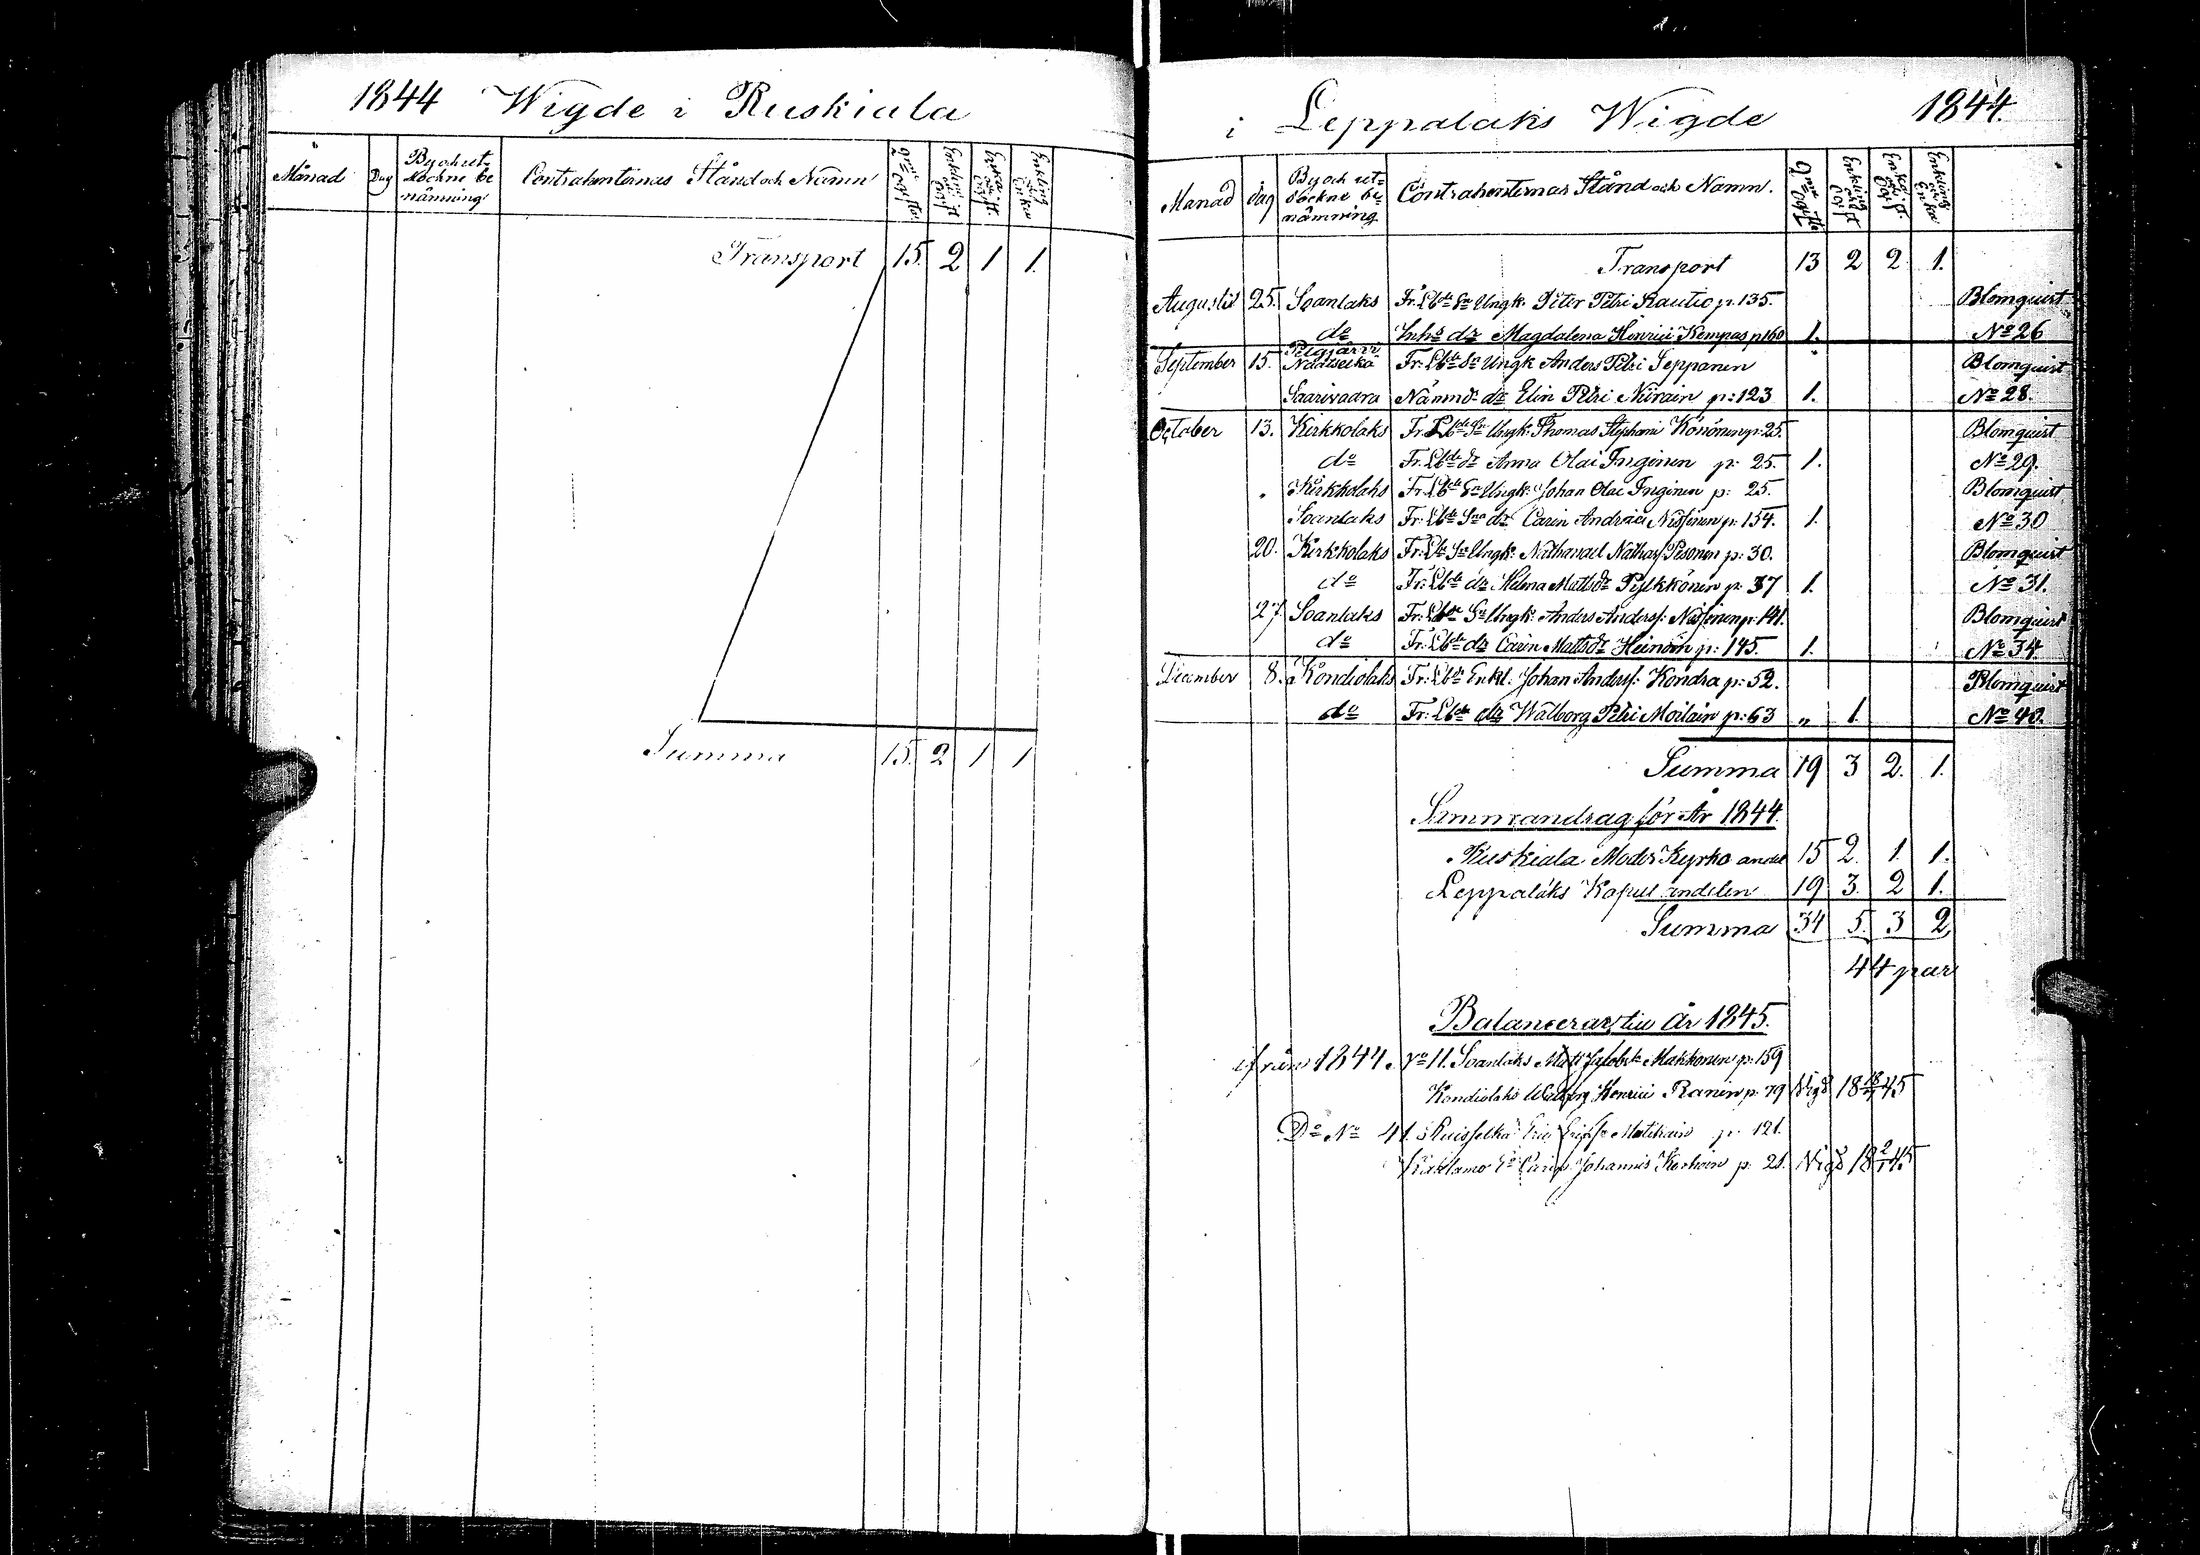 1844 Wigde i Ruskiala
Månad Dag By och ut- Contrahenternas Stånd och Namn
söckne be
nämning
Transport 15. 2 1 1.
Summa 15. 2 1 1
i Leppalaks Wigde 1844.
Månad dag By och ut- Contrahenternas Stånd och Namn.
söckne be-
nämning.
Transport 13 2 2 1.
Augusti 25. Soanlaks Fr. Lbde Sn Ungk. Peter Petri Rautio p. 135. Blomquist
do Inho dr Magdalena Henrici Kempas p 160 1. No 26
September 15. Pelgjärvi Fr: Lbde Sn Ungk Anders Petri Seppänen Blomquist
Saarivaara Nämnd: dr Elin Petri p: 123 1. No 28.
October 13. Kirkkolaks Fr. Lbde Sn Ungk: Thomas Stephani Könönen p: 25. Blomquist
do Fr. Lbde dr Anna Olai Inginen p: 25. 1. No 29.
Kirkkolaks Fr. Lbde Sn Ungk: Johan Olai Inginen p: 25. Blomquist
Soanlaks Fr: Lbde dr Carin Andreæ Nissinen p: 154. 1. No 30
20. Kirkkolaks Fr: Sn Ungk: Nathanael Pesonen p: 30. Blomquist
do Fr: Lbde dr Helena Mattsdr Pylkkönen p: 37 1. No 31.
27 Soanlaks Fr: Lbde Sn Ungk: Anders Anderss: Nissinen p: 141. Blomquist
do Fr: Lbde dr Carin Mattsdr Heinonen p: 145. 1. No 34
December 8. Kondiolaks Fr: Lbde Enkl. Johan Anderss: Kondra p: 52. Blomquist
do Fr: Lbde dr Walborg Petri Moilain p: 63 „ 1. No 40.
Summa 19 3 2. 1.
Sammandrag för År 1844.
Ruskiala Moder Kyrko andel 15 2. 1. 1.
Leppalaks Kapell andelen 19 3. 2 1.
Summa 34 5. 3 2
44 par
Balancerar till år 1845.
ifrån 1844. No 11. Soanlaks Matts Makkonen p: 159
Kondiolaks Walborg Henrici Ranin p. 79 Vigd 18 45
Do No 41. Eric p: 121.
Carin Johannis p: 21. Vigd 18 45